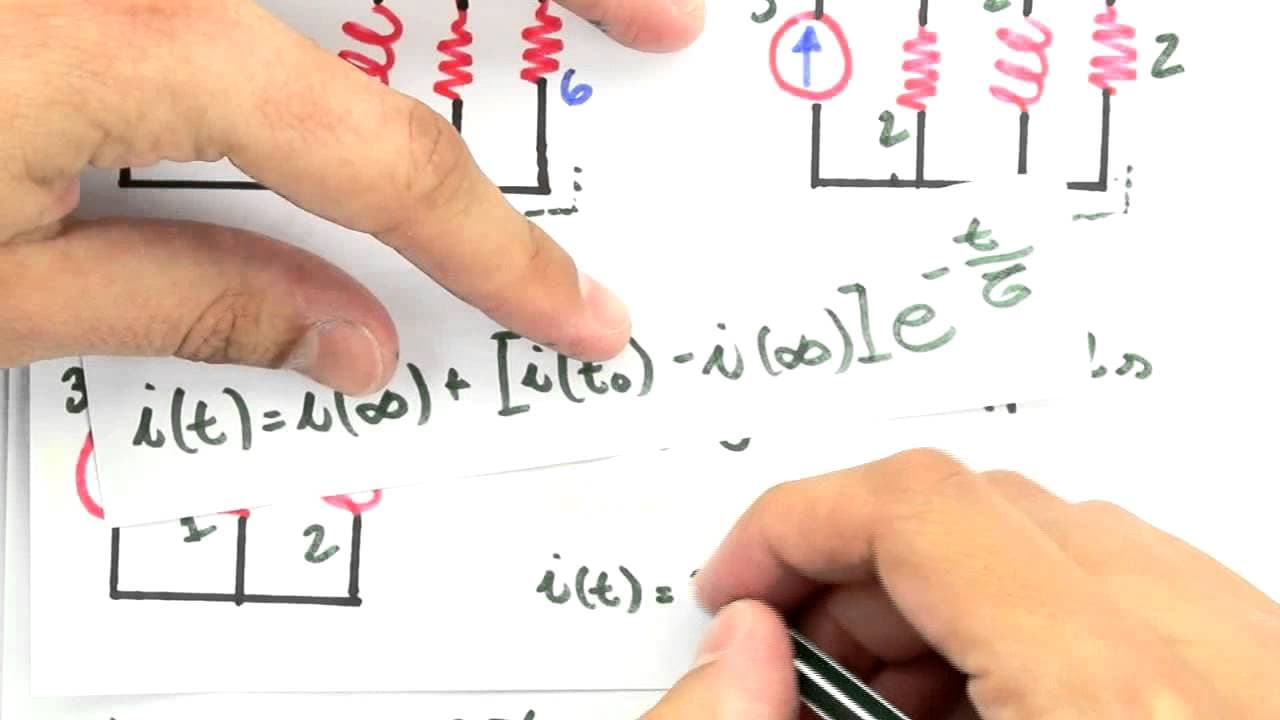 6
2
2
i(t) = i(∞) + [i(t₀) - i(∞)] e^-t/6
3
1
2
i(t) =